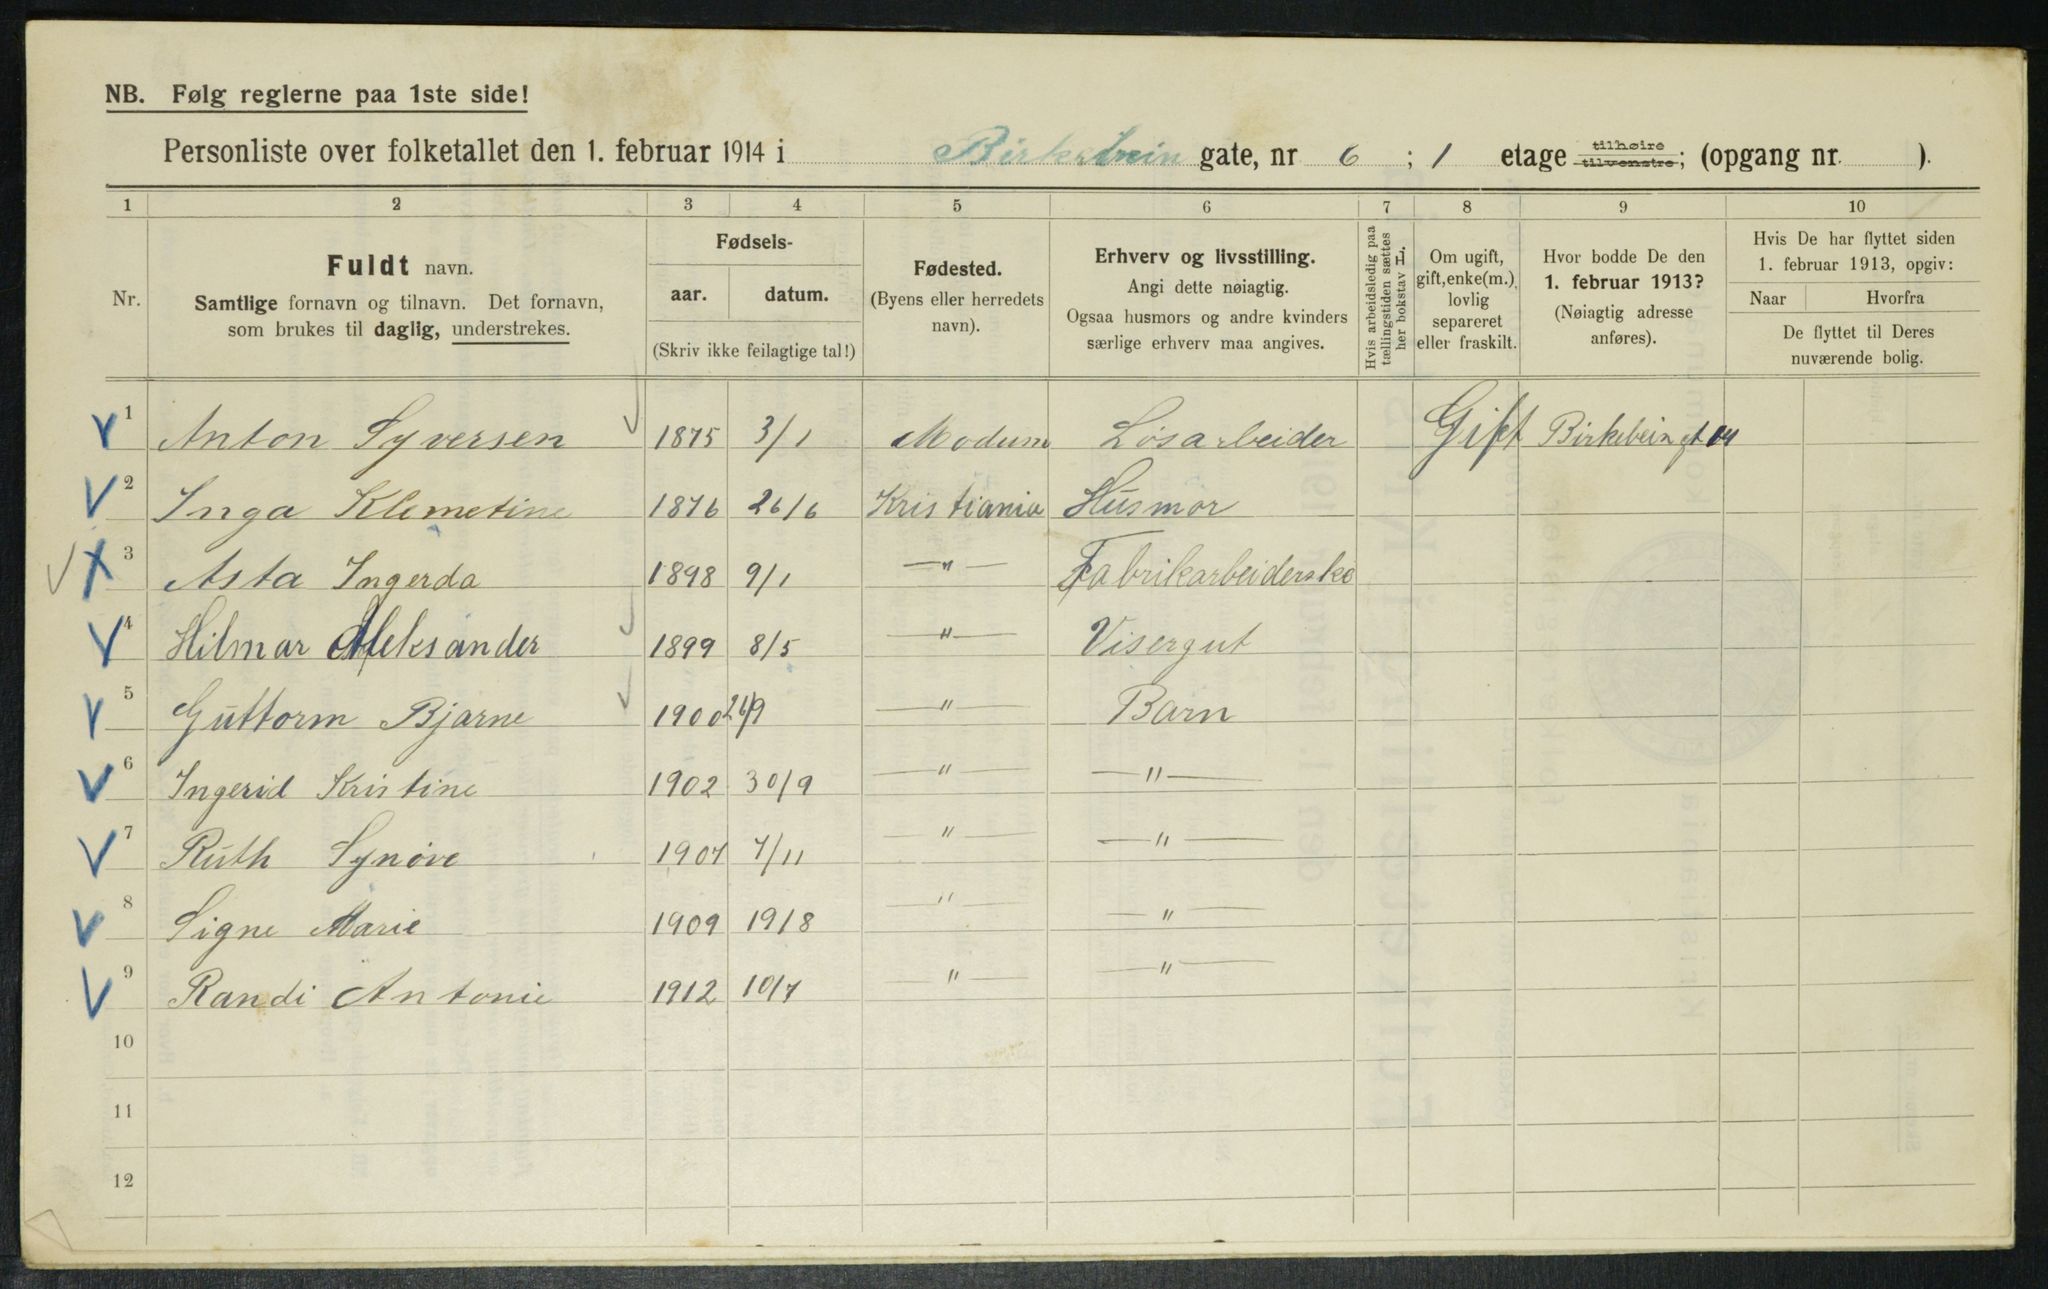 NB. Følg reglerne paa 1ste side!
Personliste over folketallet den 1. februar 1914 i Birkebein gate, nr 6 ; 1 etage tilhøire tilvenstre; (opgang nr. ).
1 2 3 4 5 6 7 8 9 10
Nr.
Fuldt navn.
Samtlige fornavn og tilnavn. Det fornavn,
som brukes til daglig, understrekes.
Fødsels-
aar. datum.
(Skriv ikke feilagtige tal!)
Fødested.
(Byens eller herredets
navn).
Erhverv og livsstilling.
Angi dette nøiagtig.
Ogsaa husmors og andre kvinders
særlige erhverv maa angives.
Hvis arbeidsledig paa
tællingstiden sættes
her bokstav L.
Om ugift,
gift, enke(m.),
lovlig
separeret
eller fraskilt.
Hvor bodde De den
1. februar 1913?
(Nøiagtig adresse
anføres).
Hvis De har flyttet siden
1. februar 1913, opgiv:
Naar Hvorfra
De flyttet til Deres
nuværende bolig.
1 Anton Syversen 1875 3/1 Modum Løsarbeider Gift Birkebein gt 14
2 Inga Klemetine 1876 26/6 Kristiania Husmor
3 Asta Ingerda 1898 9/1 — " — Fabrikarbeiderske
4 Hilmar Aleksander 1899 8/5 — " — Visergut
5 Guttorm Bjarne 1900 26/9 — " — Barn
6 Ingerid Kristine 1902 30/9 — " — — " —
7 Ruth Synøve 1907 7/11 — " — — " —
8 Signe Marie 1909 19/8 — " — — " —
9 Randi Antonie 1912 10/7 " — — " —
10
11
12